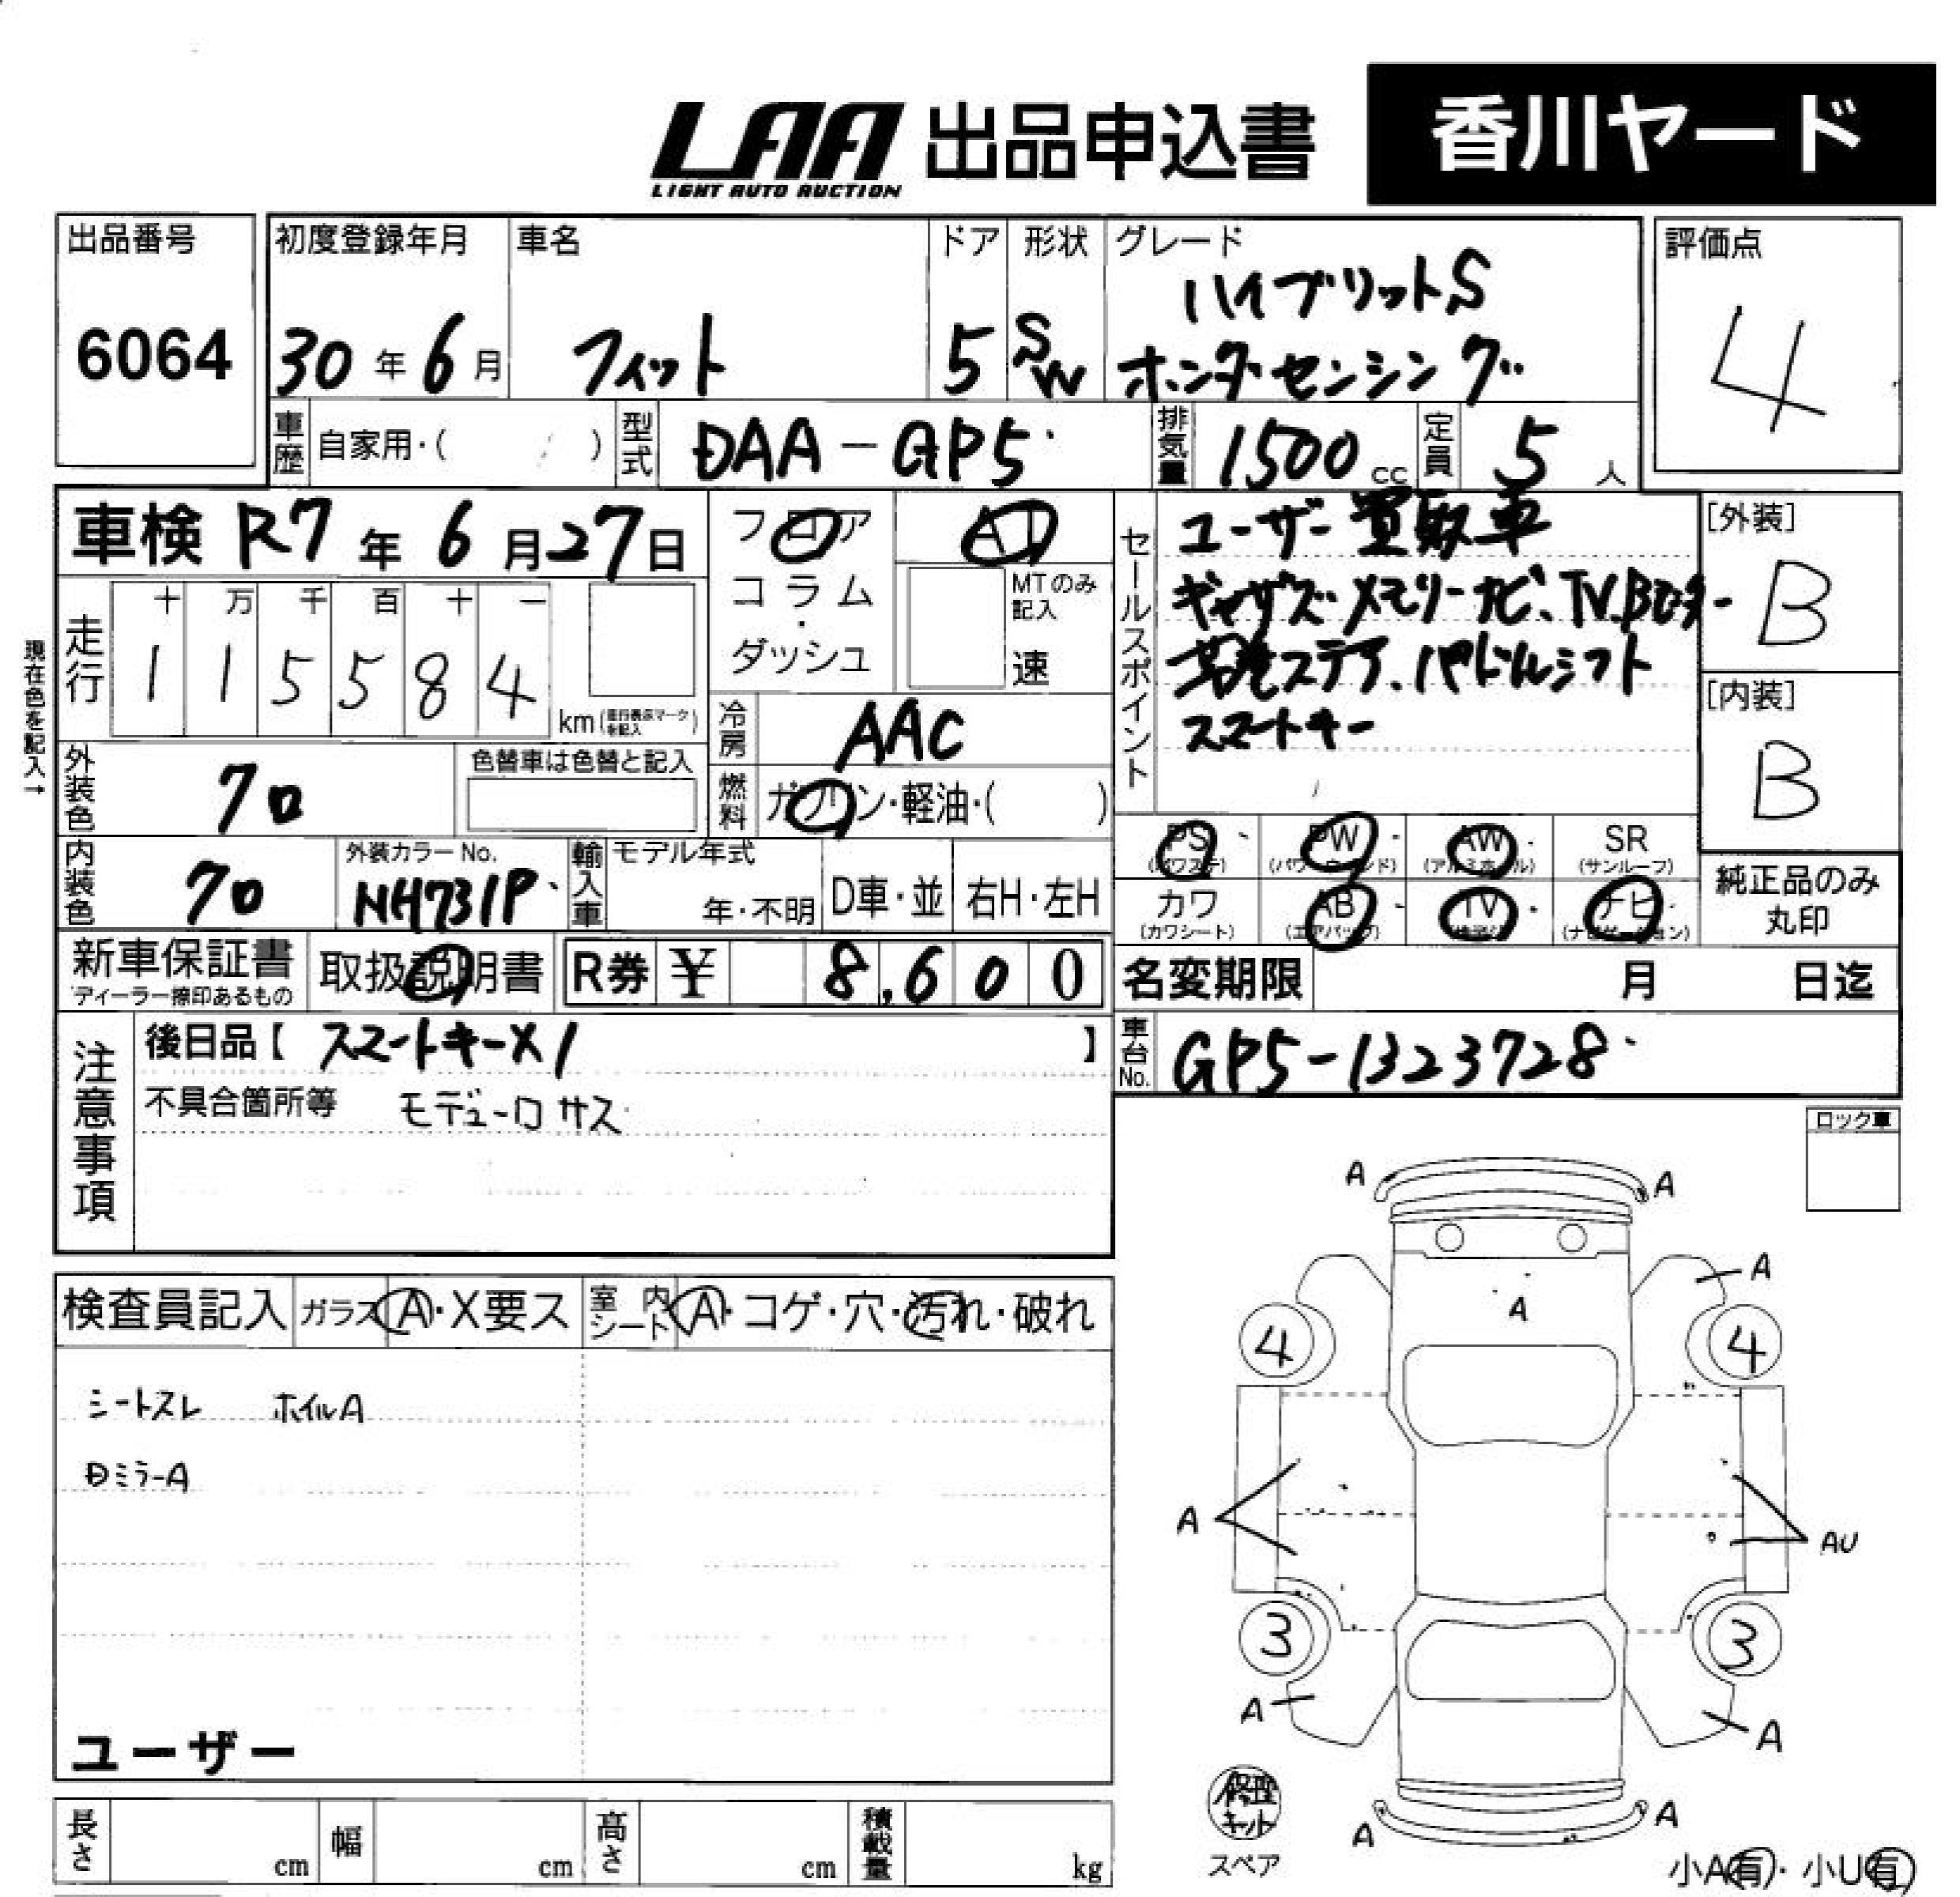 LAA 出品申込書 香川ヤード
LIGHT AUTO AUCTION
出品番号 初度登録年月 車名 ドア 形状 グレード 評価点
6064 30年6月 フィット 5 SW ハイブリットS
ホンダセンシング 4
車歴 自家用・( ) 型式 DAA-GP5 排気量 1500cc 定員 5人
車検 R7年6月27日
フロア AT
コラム・ MTのみ記入
ダッシュ 速
セールスポイント ユーザー買取車
ギャザズメモリーナビ、TV.Bカメラ
革巻ステア、パドルシフト
スマートキー
[外装] B
[内装] B
現在色を記入→
走行 十 万 千 百 十 一
1 1 5 5 8 4 km(走行表示マークを記入)
冷房 AAC
外装色 クロ 色替車は色替と記入
燃料 ガソリン・軽油・( )
PS(パワステ) PW(パワーウィンド) AW(アルミホイル) SR(サンルーフ)
カワ(カワシート) AB(エアバック) TV ナビ(ナビゲーション)
純正品のみ丸印
内装色 クロ 外装カラーNo. NH731P 輸入車 モデル年式 年・不明 D車・並 右H・左H
新車保証書 ディーラー捺印あるもの 取扱説明書 R券 ¥ 8,600
名変期限 月 日迄
車台No. GP5-1323728
注意事項 後日品【 スマートキー×1 】
不具合箇所等 モデューロサス
ロック車
検査員記入 ガラス A・X要ス 室内シート A・コゲ・穴・汚れ・破れ
シートスレ ホイルA
Dミラ-A
ユーザー
長さ cm 幅 cm 高さ cm 積載量 kg
A A
A
A
4 4
A AU
3 3
A A
A A
修理キット
スペア
小A有・小U有